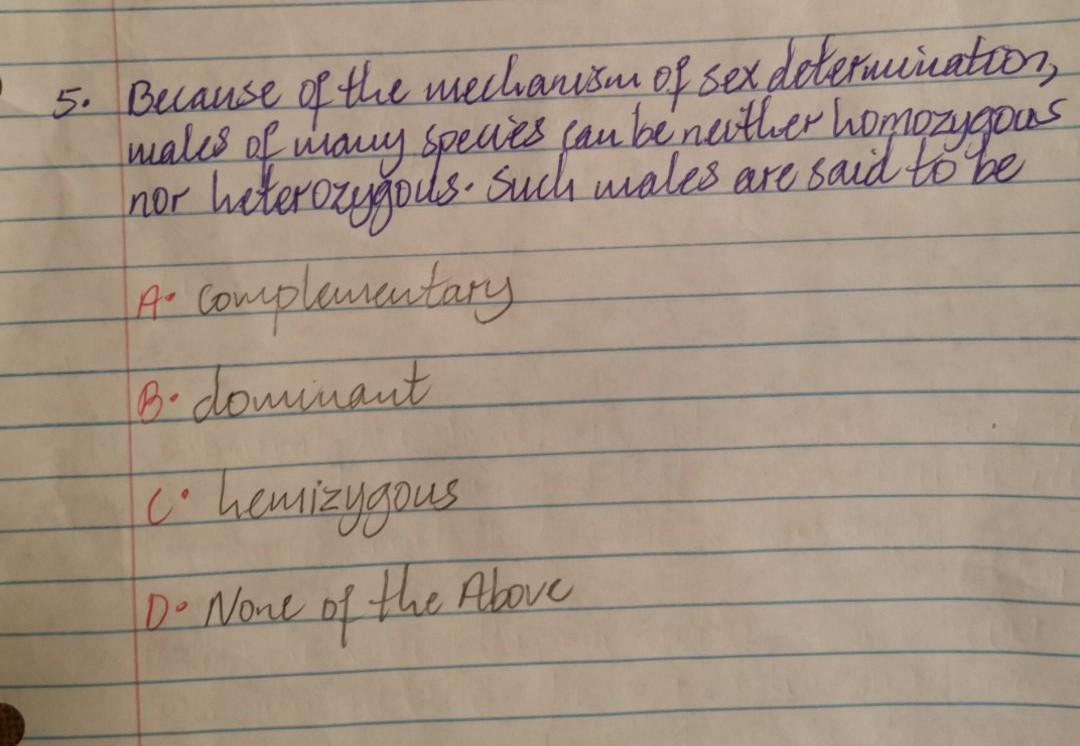 5. Because of the mechanism of sex determination,
males of many species can be neither homozygous
nor heterozygous. Such males are said to be
A. complementary
B. dominant
C. hemizygous
D. None of the Above